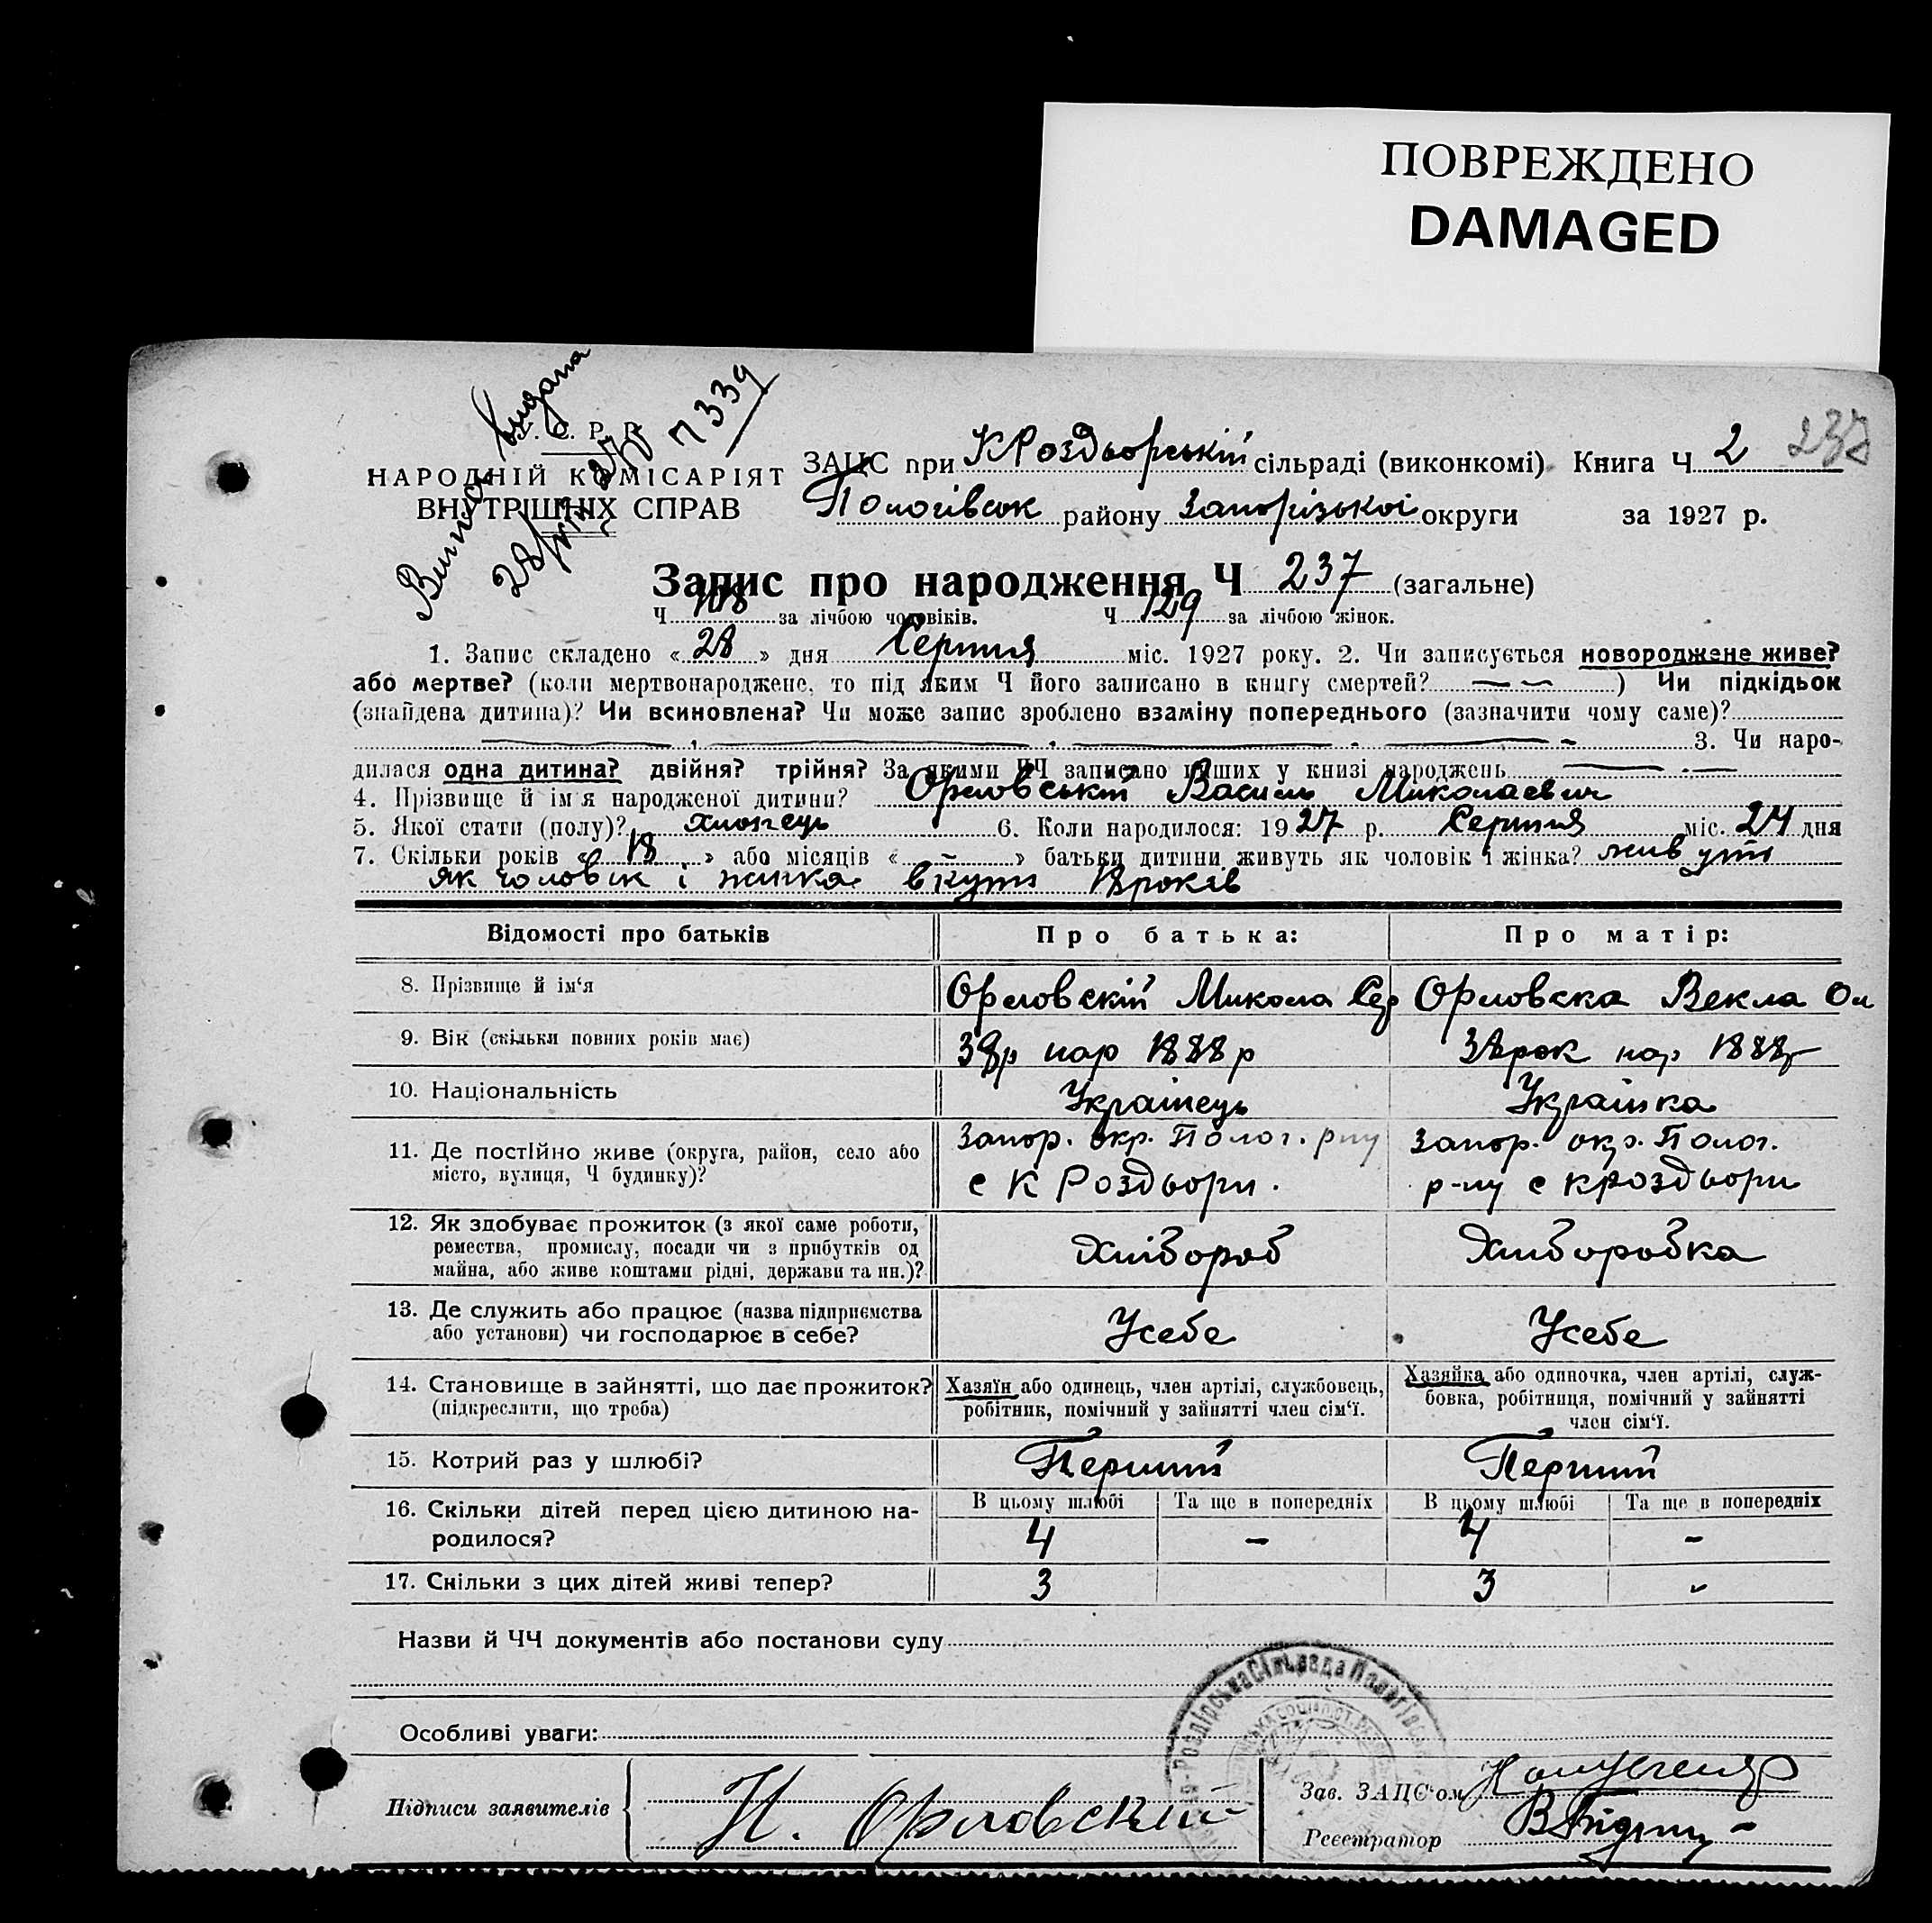 ПОВРЕЖДЕНО
DAMAGED
Виписка видана
28/VIII 27р n 339
У. С. Р. Р.
НАРОДНІЙ КОМІСАРІЯТ
ВНУТРІШНІХ СПРАВ
ЗАЦС при КРоздьорській сільраді (виконкомі) Книга Ч 2 237
Пологівськ району Запорізької округи за 1927 р.
Запис про народження Ч 237 (загальне)
Ч 108 за лічбою чоловіків. Ч 129 за лічбою жінок.
1. Запис складено « 28 » дня Серпня міс. 1927 року. 2. Чи записується новороджене живе?
або мертве? (коли мертвонароджене, то під яким Ч його записано в книгу смертей? — — ) Чи підкідьок
(знайдена дитина)? Чи всиновлена? Чи може запис зроблено взаміну попереднього (зазначити чому саме)?
3. Чи наро-
дилася одна дитина? двійня? трійня? За якими ЧЧ записано инших у книзі народжень — —
4. Прізвище й ім'я народженої дитини? Орловській Василь Миколаевич
5. Якої стати (полу)? хлопець 6. Коли народилося: 1927 р. Серпня міс. 24 дня
7. Скільки років « 18 » або місяців « - » батьки дитини живуть як чоловік і жінка? живуть
як чоловік і жинка вкупі 18 років
Відомості про батьків Про батька: Про матір:
8. Прізвище й ім‘я Орловскій Микола Сер Орловска Векла Ол
9. Вік (скільки повних років має) 39р нар 1888р 39рок нар 1888р
10. Національність Українець Українка
11. Де постійно живе (округа, район, село або Запор. окр. Полог. р-ну Запор. окр. Полог.
місто, вулиця, Ч будинку)? с К Роздьори. р-ну с КРоздьори
12. Як здобуває прожиток (з якої саме роботи,
ремества, промислу, посади чи з прибутків од Хлібороб Хліборобка
майна, або живе коштами рідні, держави та ин.)?
13. Де служить або працює (назва підприємства Усебе Усебе
або установи) чи господарює в себе?
14. Становище в зайнятті, що дає прожиток? Хазяїн або одинець, член артілі, службовець, Хазяйка або одиночка, член артілі, служ-
(підкреслити, що треба) робітник, помічний у зайнятті член сім‘ї. бовка, робітниця, помічний у зайнятті
член сім‘ї.
15. Котрий раз у шлюбі? Перший Перший
16. Скільки дітей перед цією дитиною на- В цьому шлюбі Та ще в попередніх В цьому шлюбі Та ще в попередніх
родилося? 4 - 4 -
17. Скільки з цих дітей живі тепер? 3 3 -
Назви й ЧЧ документів або постанови суду
Особливі уваги:
Підписи заявителів Н. Орловскій Зав. ЗАЦС‘ом
Реєстратор